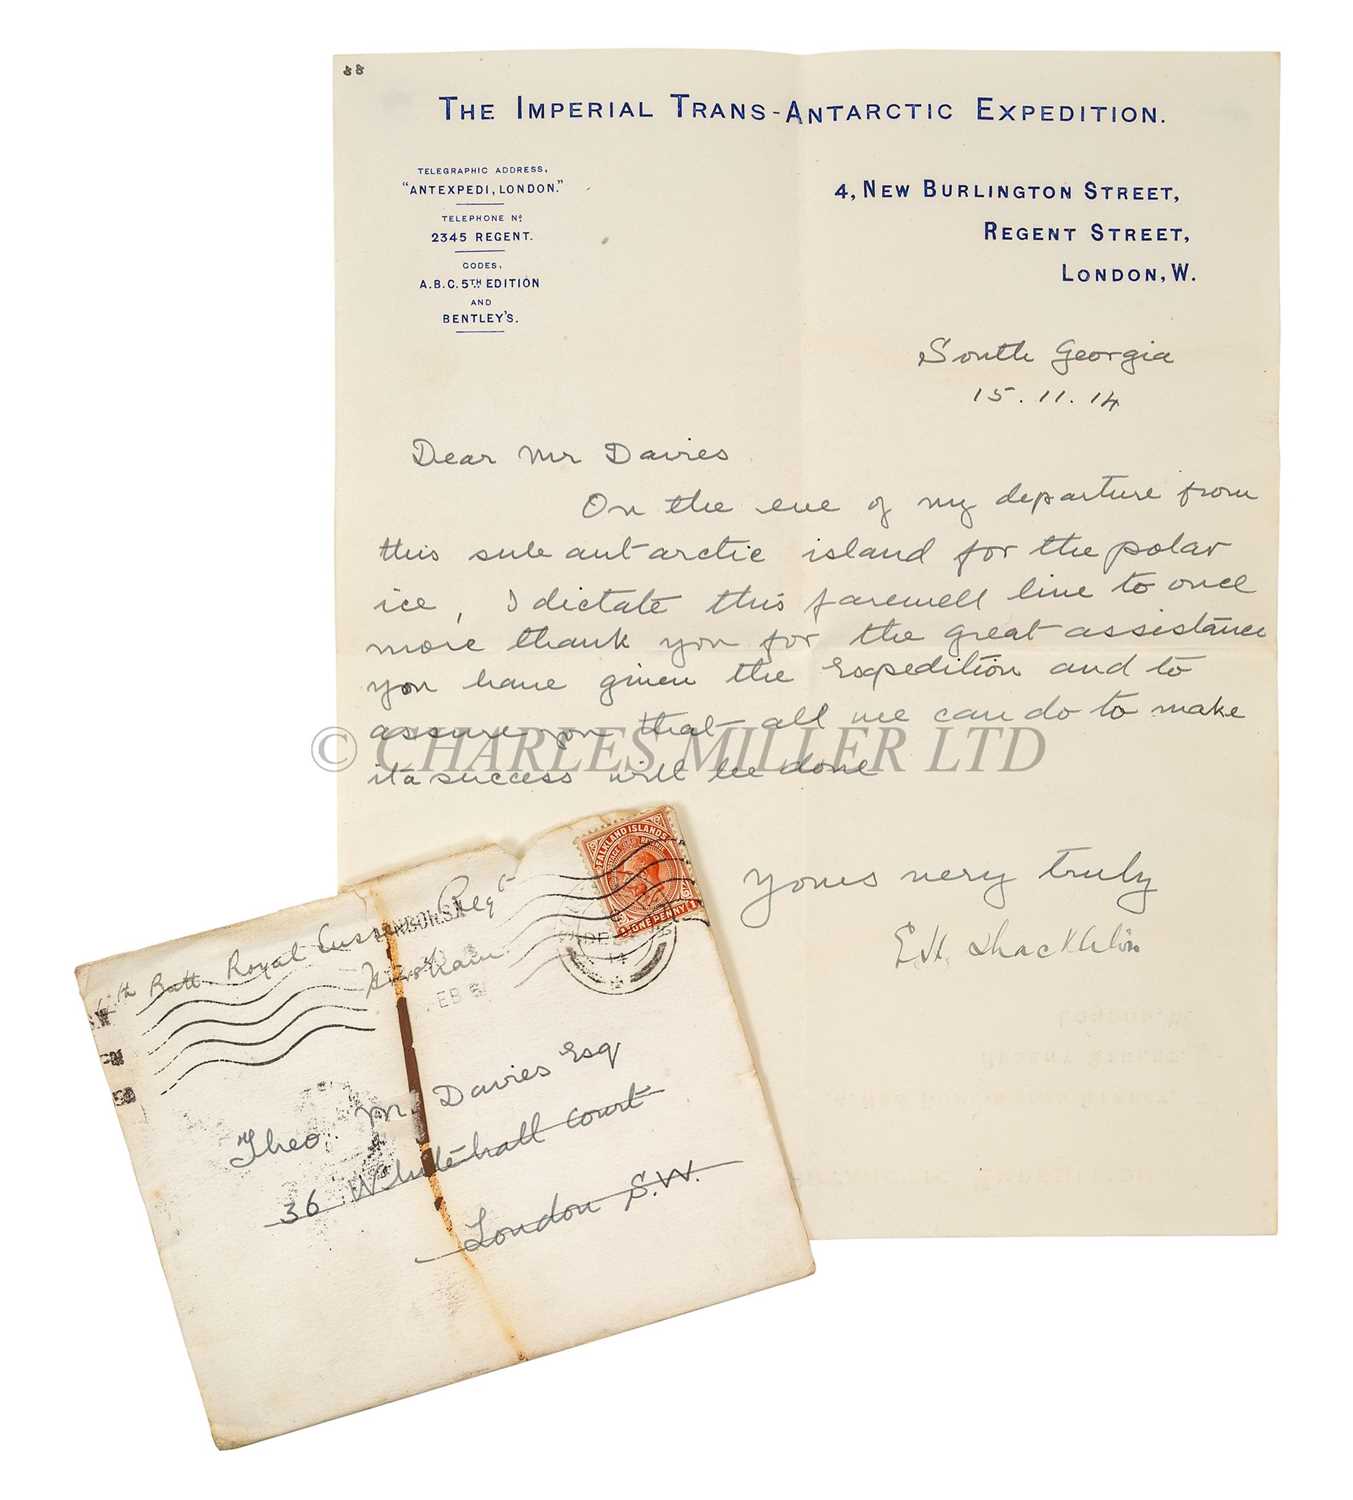 THE IMPERIAL TRANS-ANTARCTIC EXPEDITION.
TELEGRAPHIC ADDRESS,
"ANTEXPEDI, LONDON."
TELEPHONE No.
2345 REGENT.
CODES,
A.B.C. 5TH EDITION
AND
BENTLEY'S.
4, NEW BURLINGTON STREET,
REGENT STREET,
LONDON, W.
South Georgia
15.11.14
Dear Mr Davies
On the eve of my departure from
this sub antarctic island for the polar
ice, I dictate this farewell line to once
more thank you for the great assistance
you have given the Expedition and to
assure you that all we can do to make
its success will be done
Yours very truly
E H Shackleton
© CHARLES MILLER LTD
FALKLAND ISLANDS
ONE PENNY
DE
14
th Batt. Royal Sussex Regt
EB
Theo. M. Davies Esq
36 Whitehall Court
London S.W.